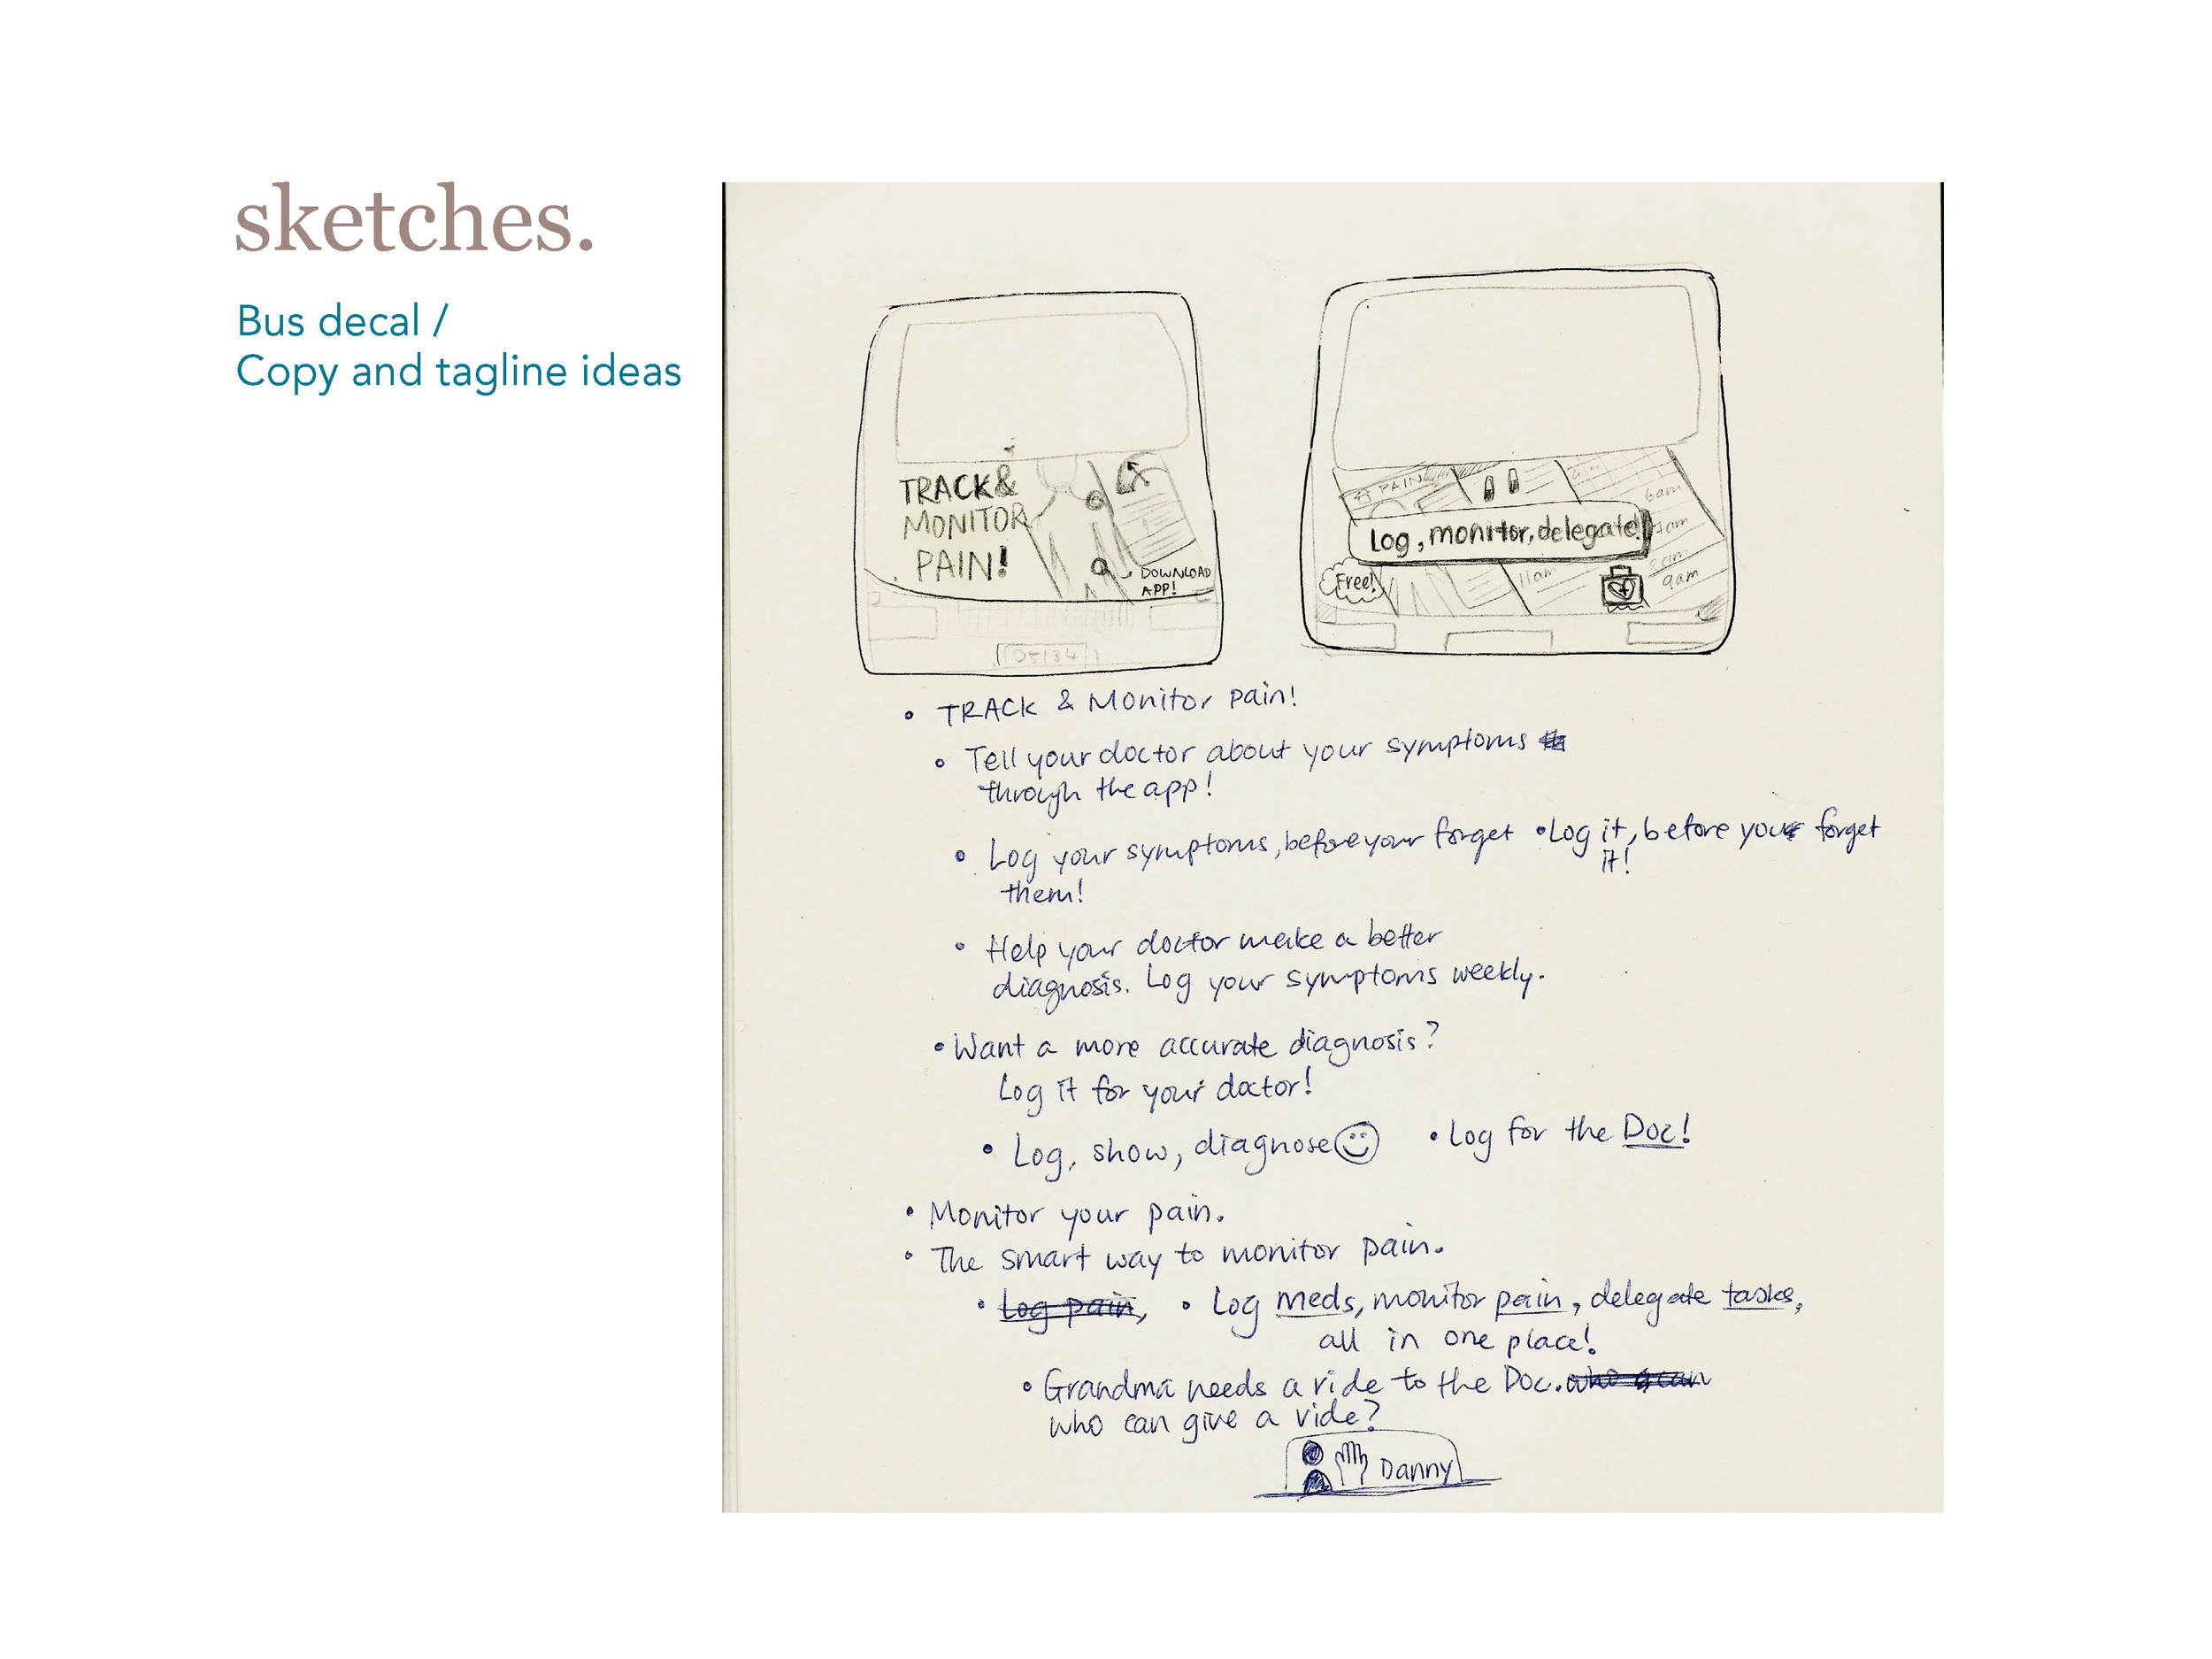 sketches.
Bus decal /
Copy and tagline ideas
TRACK &
MONITOR
PAIN!
DOWNLOAD
APP!
PAIN
6am
Log, monitor, delegate!
9am
11am
Free!
• TRACK & Monitor pain!
• Tell your doctor about your symptoms
through the app!
• Log your symptoms, before your forget
them!
• Log it, before you forget
it!
• Help your doctor make a better
diagnosis. Log your symptoms weekly.
• Want a more accurate diagnosis?
Log it for your doctor!
• Log, show, diagnose
• Log for the Doc!
• Monitor your pain.
• The smart way to monitor pain.
• Log pain,
• Log meds, monitor pain, delegate tasks,
all in one place!
• Grandma needs a ride to the Doc. who can
who can give a ride?
Danny